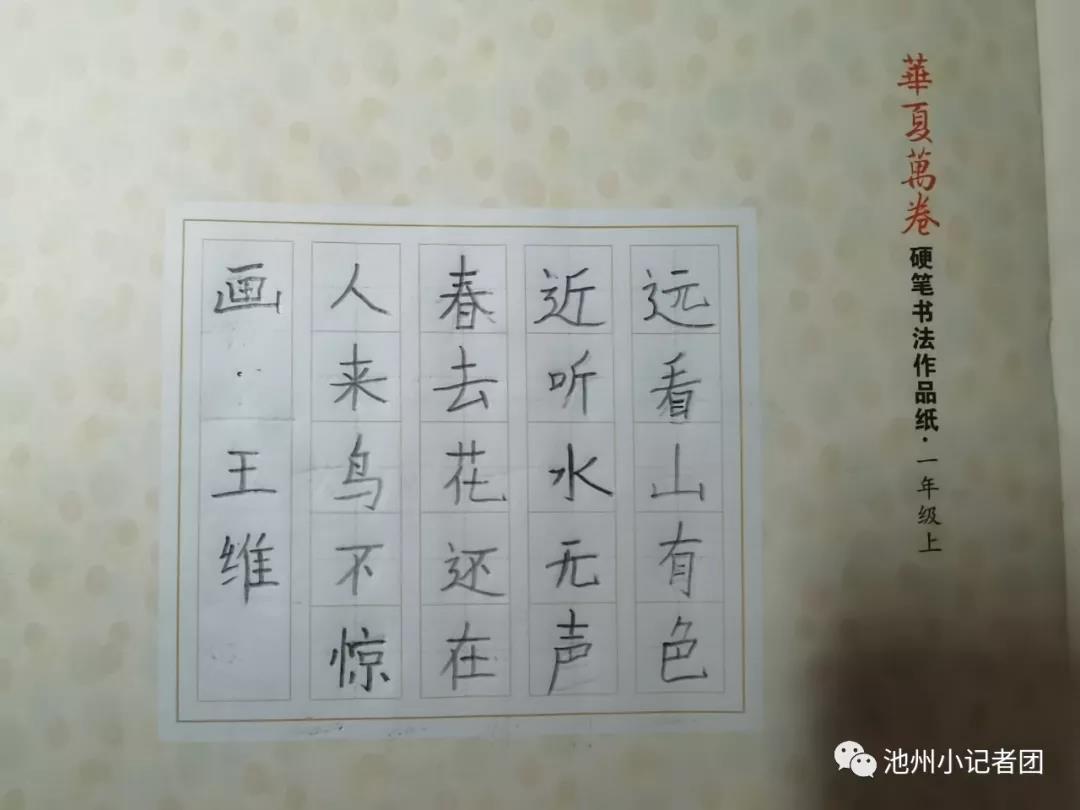 華夏萬卷硬笔书法作品纸·一年级上
远看山有色
近听水无声
春去花还在
人来鸟不惊
画·王维
池州小记者团